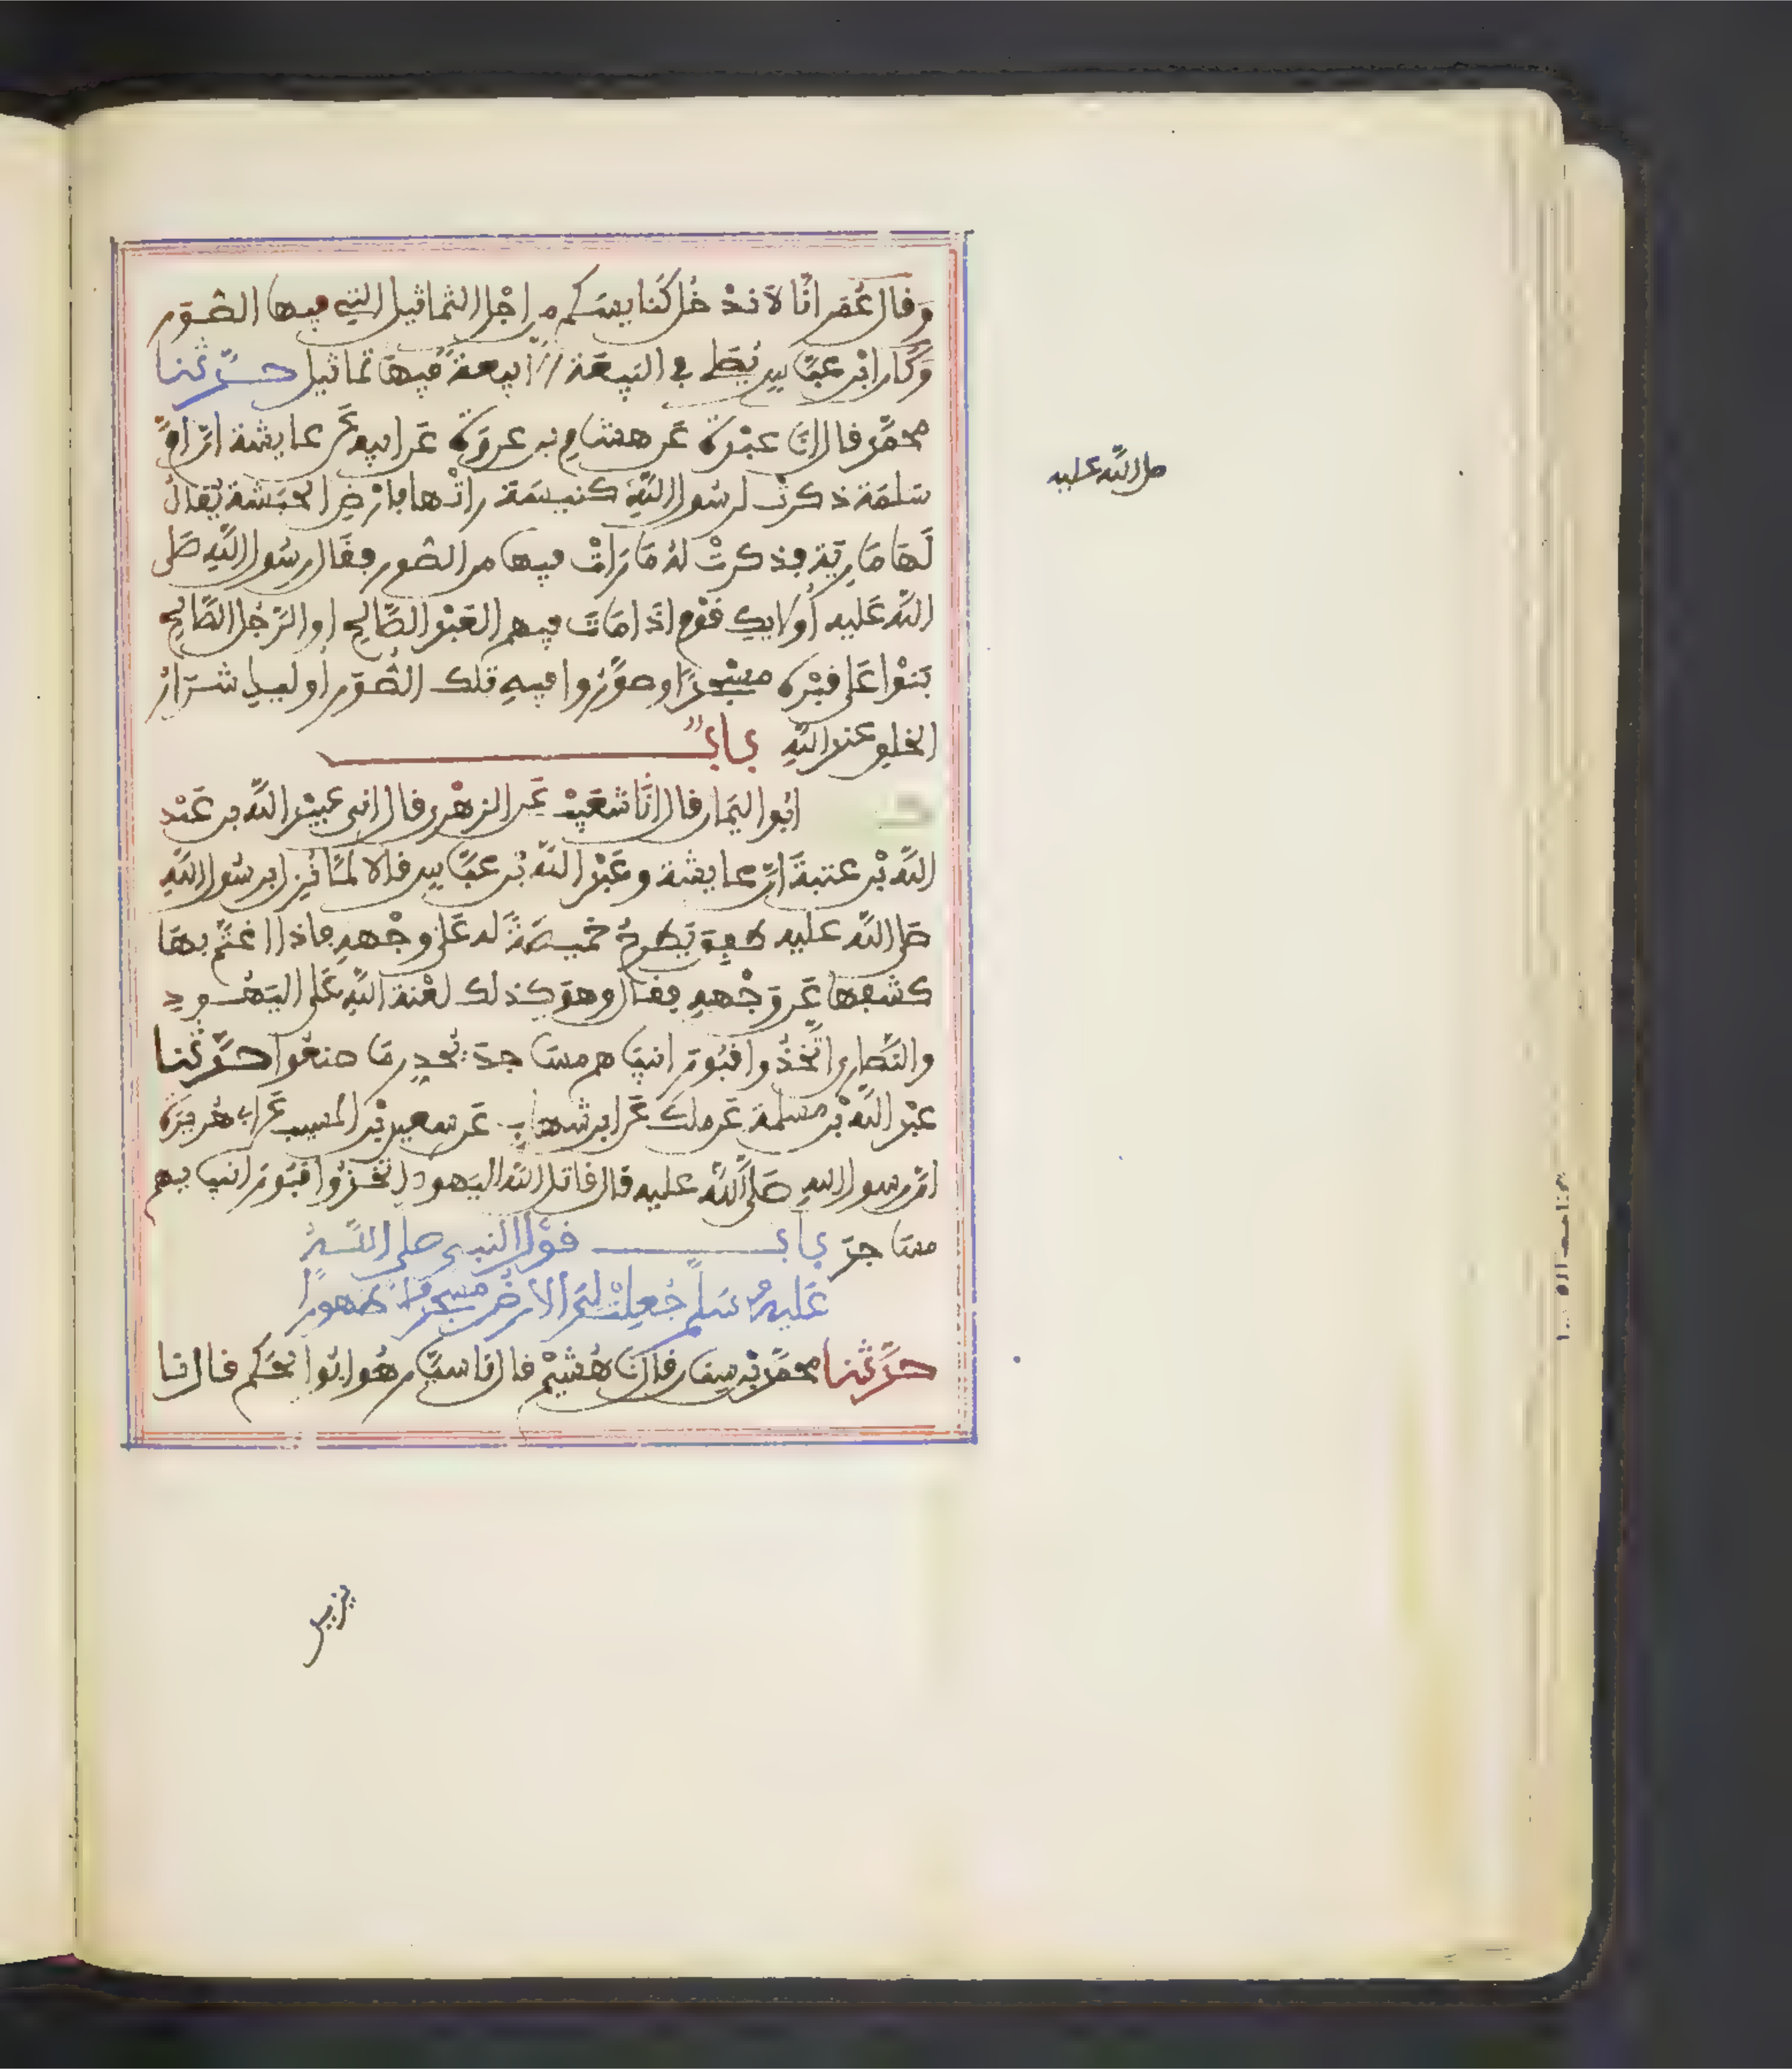 وَقال عُمَر انَّا لَا نَدْ خُل كَنايسَكم من اجْل التماثيل التِي فيها الصُوَر
وَكَان ابْن عبَّاس يُصَلى في البِيعَة الا بيعة فيهَا تماثيل حدَّثنا
محمّد قال انَا عبْدة عَن هشام بن عروَة عَن ابيه عَن عايشة انّ امَّ
سَلمَة ذكرتْ لرسُول اللهِ كنيسَة راتْها بارْض الحبَشة يُقالُ
لَهَا مَارِيَة فذكرتْ لهُ مَا رَاتْ فيها من الصُور فقَال رسُول اللهِ صَلى
اللهُ عَليه أُولايك قوْم اذَا مَاتَ فيهم العَبْد الصَّالح او الرَّجُل الصَّالح
بَنوْا عَلى قبْره مسْجدًا وصوَّرُوا فيهِ تلك الصُّوَر اوليك شرَارُ
الخلق عند اللهِ بابٌ
ابُو اليَمان قال انَا شعَيبْ عَن الزهْري قال اني عبيْد الله بن عَبْد
اللهِ بْن عتبةَ انّ عايشة وعَبْد الله بْن عبَّاس قالا لمَّا نُزل برسُول اللهِ
صَلى اللهُ عليه طفِقَ يَطرحُ خميصَةً له عَلى وجْههِ فاذا اغتمّ بهَا
كشفها عَن وَجْههِ فقال وهوَ كذلك لعْنة اللهِ عَلى اليَهُود
والنَّصارى اتَّخذُوا قبُور انبيَا هم مسَا جدَ يُحذر مَا صنعُوا حدَّثنا
عبْد الله بْن مسْلمة عَن ملك عَن ابن شهاب عَن سعيد بْن المسيب عَن ابي هُريرَة
انّ رسول اللهِ صَلى اللهُ عليه قال قاتل اللهُ اليَهود اتخذُوا قبُور انبيا يهم
مسَا جدَ بابُ قوْل النبي صلى اللهُ
عَليهِ وسَلم جُعلتْ لِي الارْضُ مسْجدًا وَطهورًا
حدَّثنا محمّد بْن سِنان قال نَا هُشيْمْ قال نا سيَّار هُو ابُو الحَكم قال نا
صلى الله عليه
يزيد